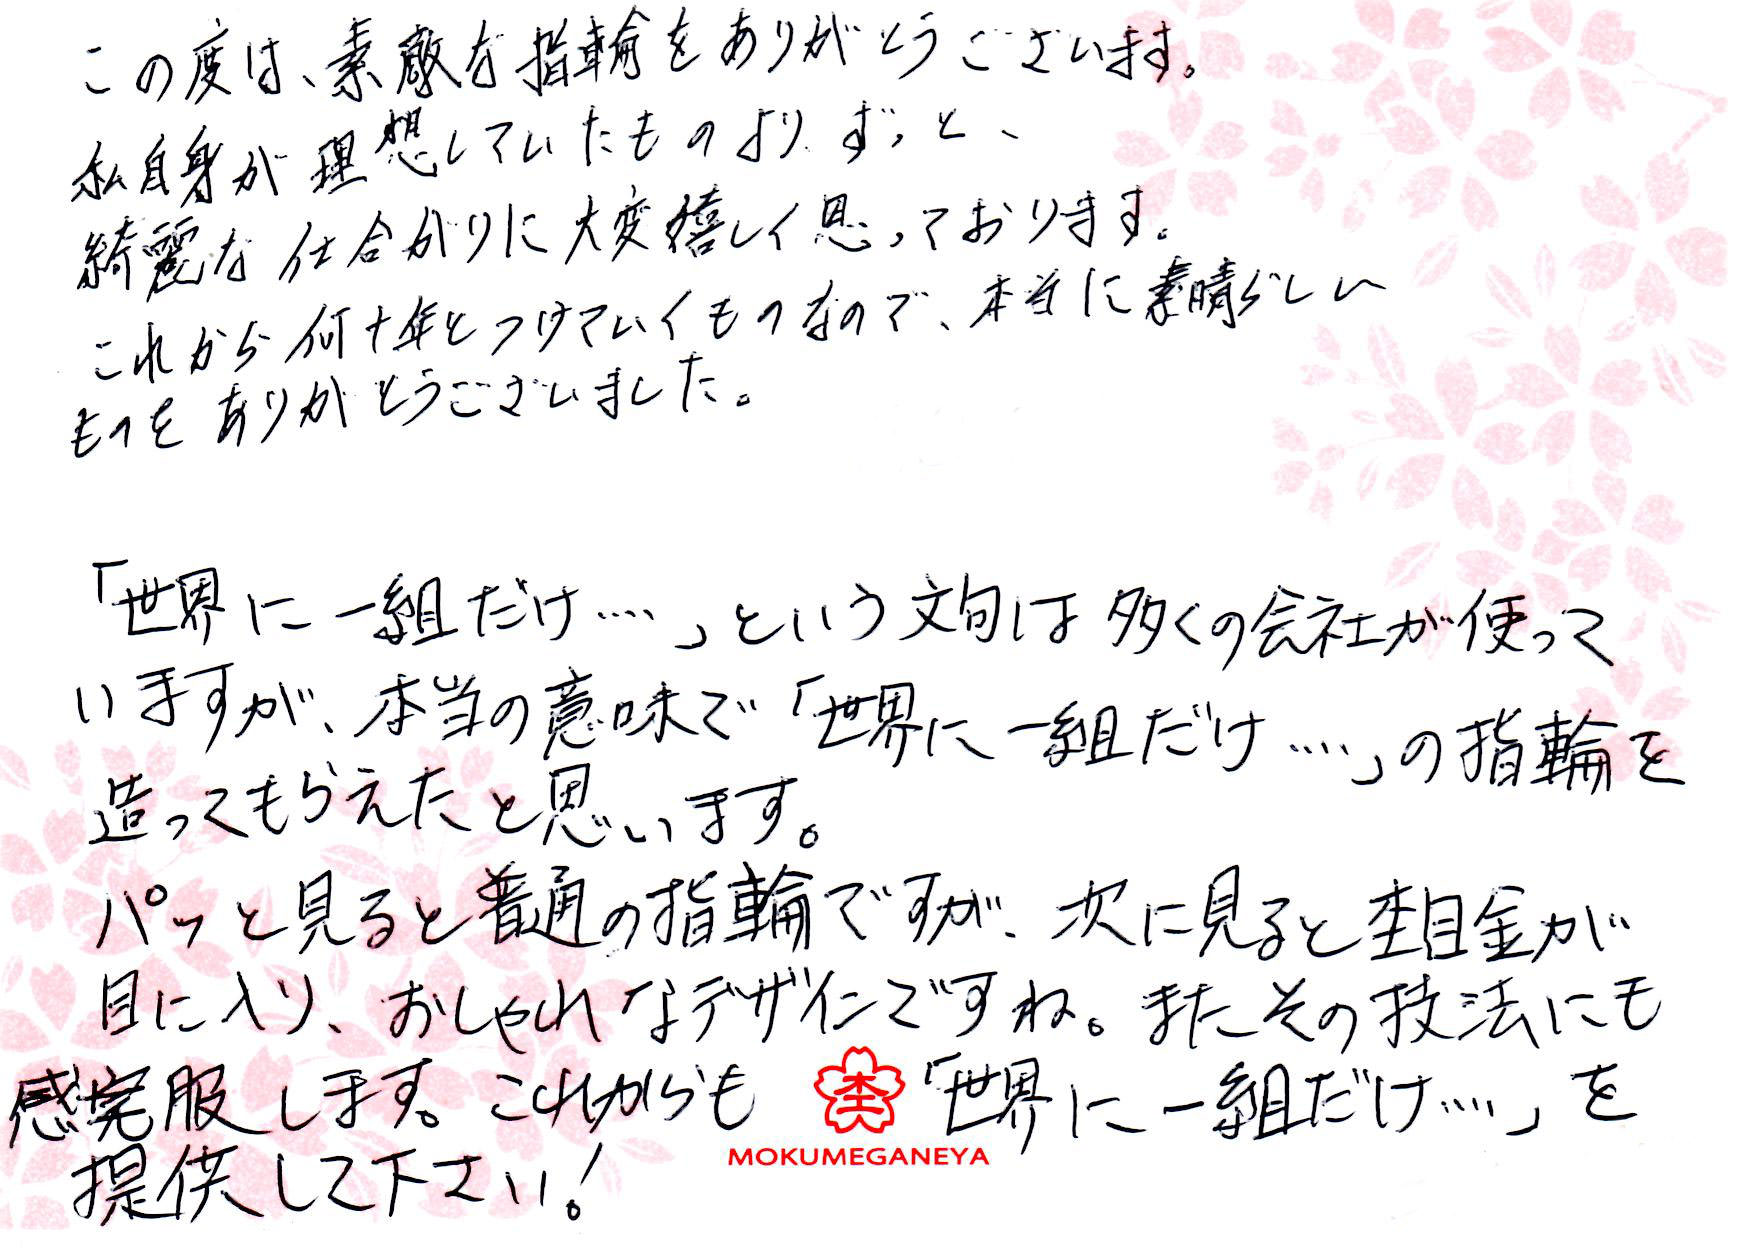 この度は、素敵な指輪をありがとうございます。
私自身が理想していたものよりずっと、
綺麗な仕合がりに大変嬉しく思っております。
これから何十年とつけていくものなので、本当に素晴らしい
ものをありがとうございました。
「世界に一組だけ‥‥」という文句は多くの会社が使って
いますが、本当の意味で「世界に一組だけ‥‥」の指輪を
造ってもらえたと思います。
パッと見ると普通の指輪ですが、次に見ると杢目金が
目に入り、おしゃれなデザインですね。またその技法にも
感完服します。これからも「世界に一組だけ‥‥」を
提供して下さい!
杢
MOKUMEGANEYA